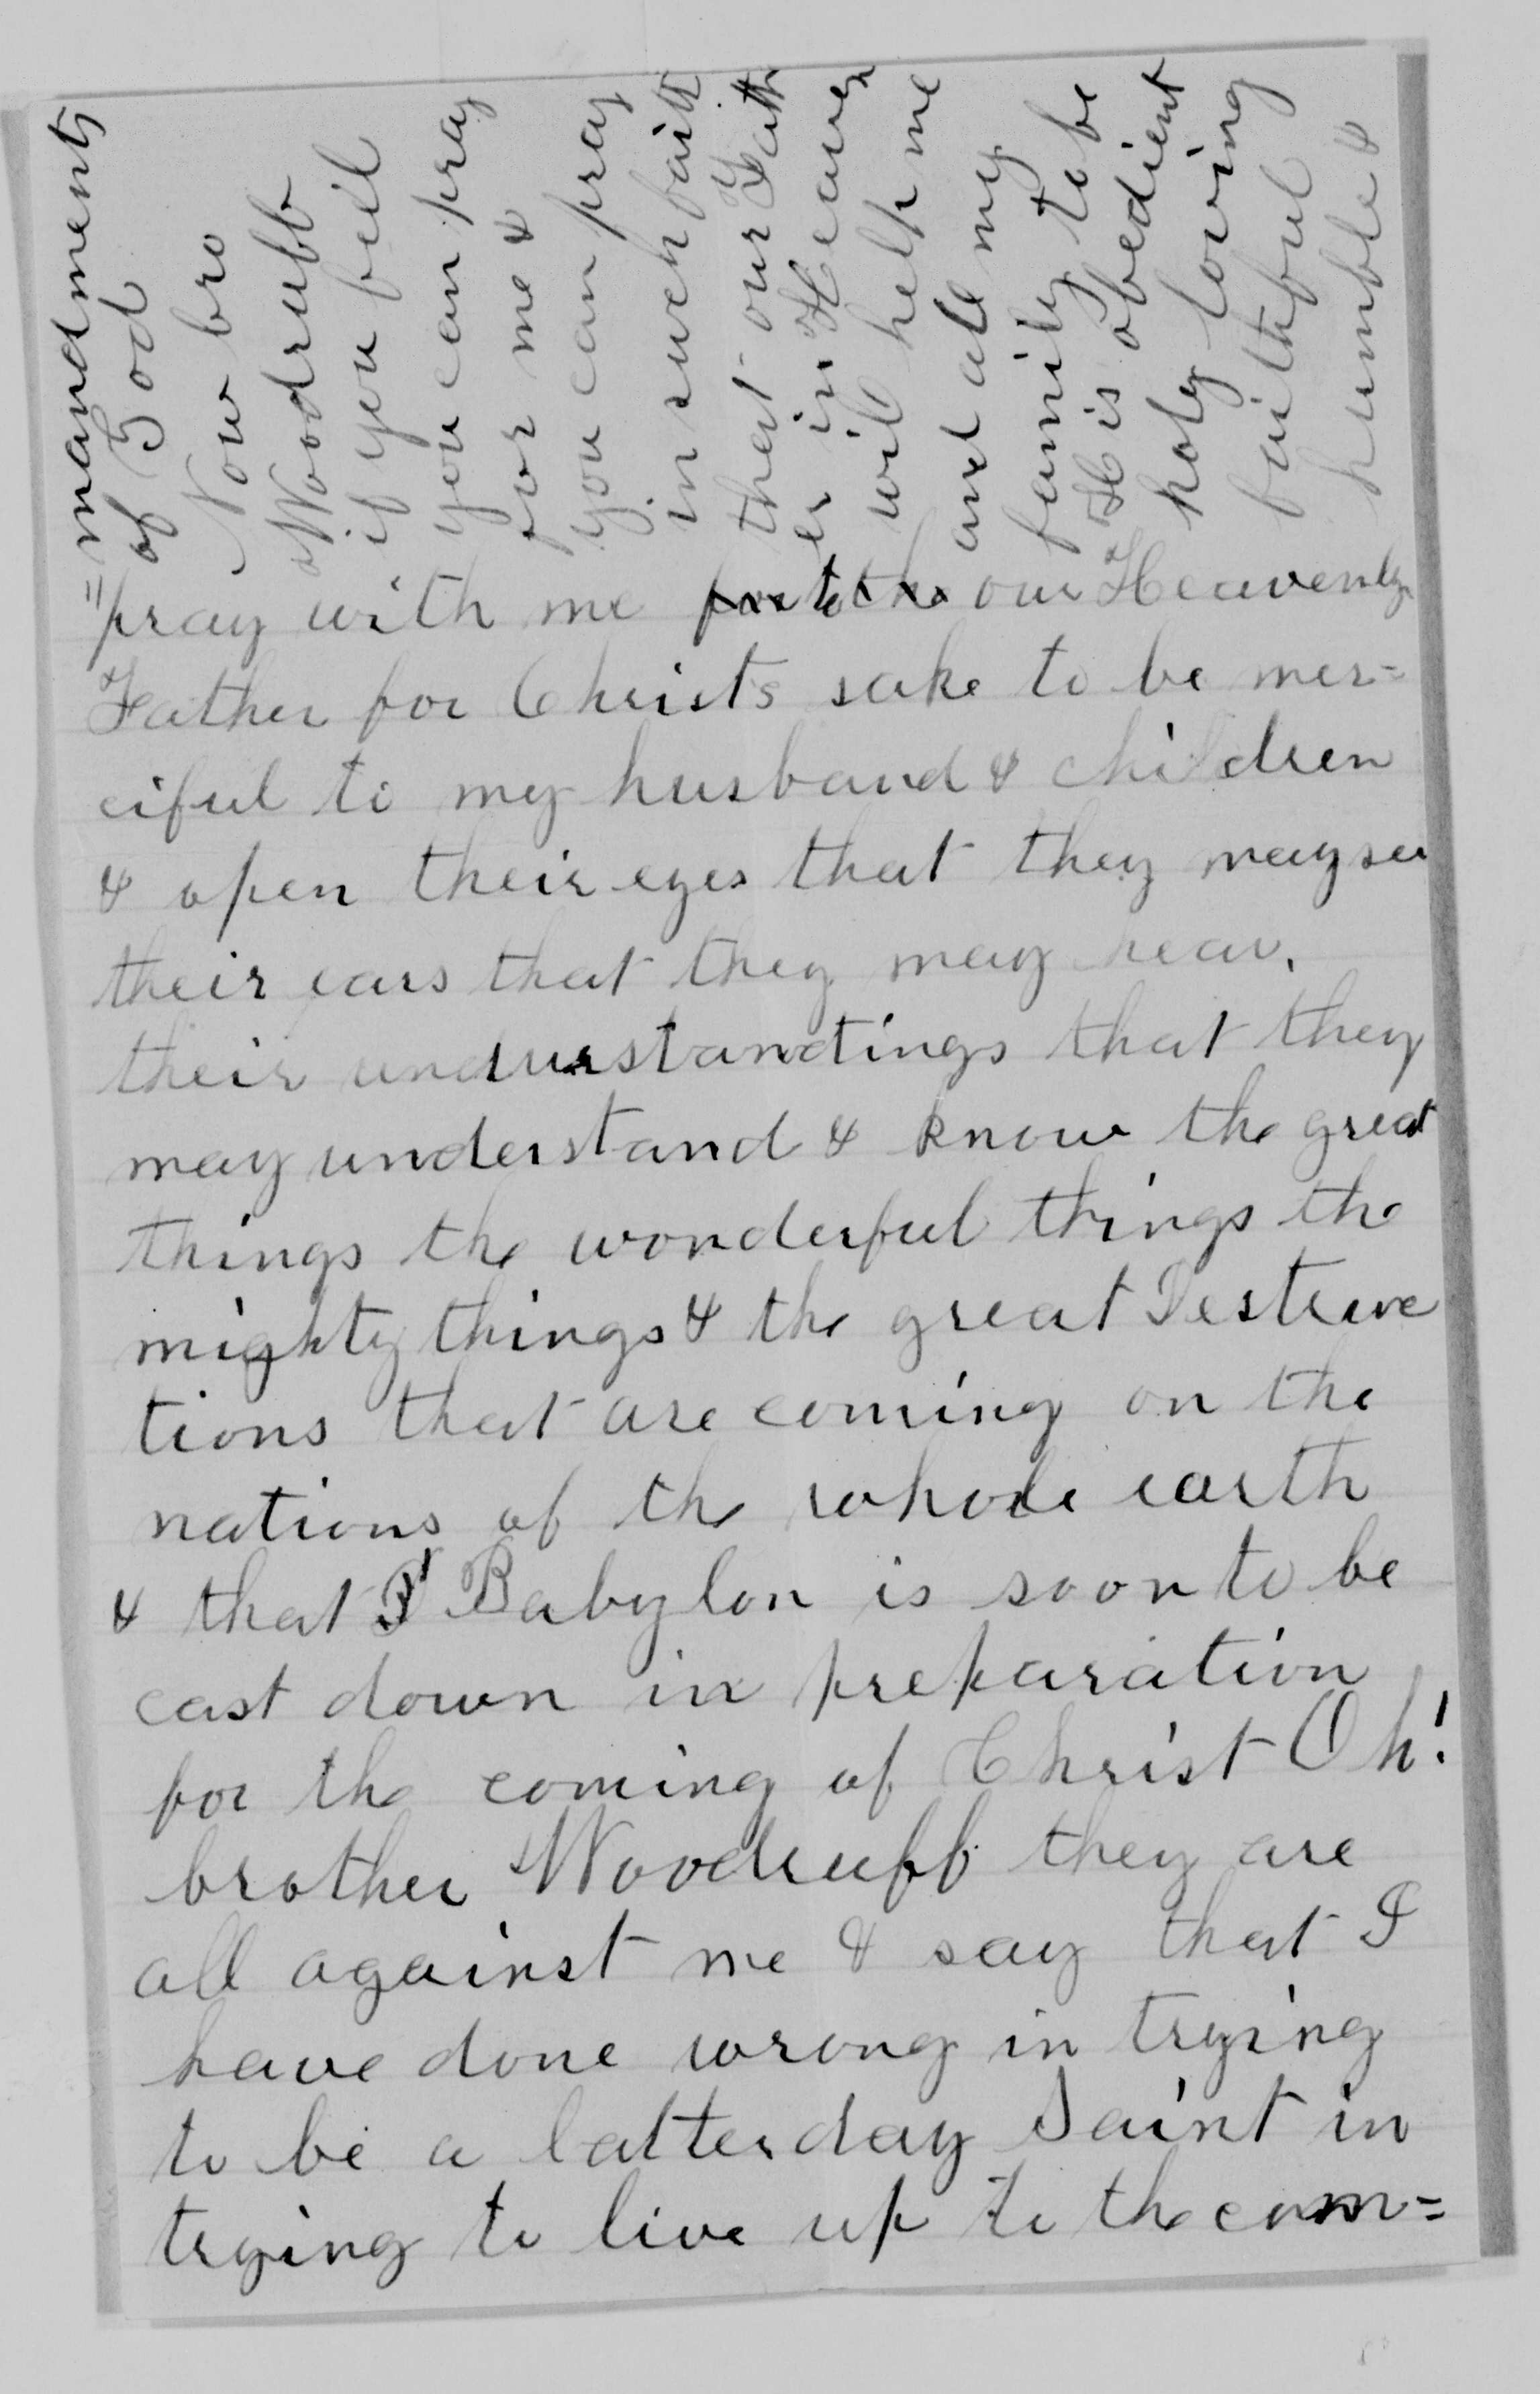 =pray with me for to the our Heavenly
Father for Christs sake to be mer=
ciful to my husband & children
& open their eyes that they may see
their ears that they may hear.
their understandings that they
may understand & know the great
things the wonderful things the
mighty things & the great Destruc
tions that are coming on the
nations of the whole earth
& that Babylon is soon to be
cast down in preparation
for the coming of Christ Oh!
brother Woodruff they are
all against me & say that I
have done wrong in trying
to be a latterday Saint in
trying to live up to the com=
=mandments
of God
Now bro
Woodruff
if you feel
you can pray
for me &
you can pray
in such faith
that our Fath
er in Heaven
will help me
and all my
family to be
His obedient
holy loving
faithful
humble &